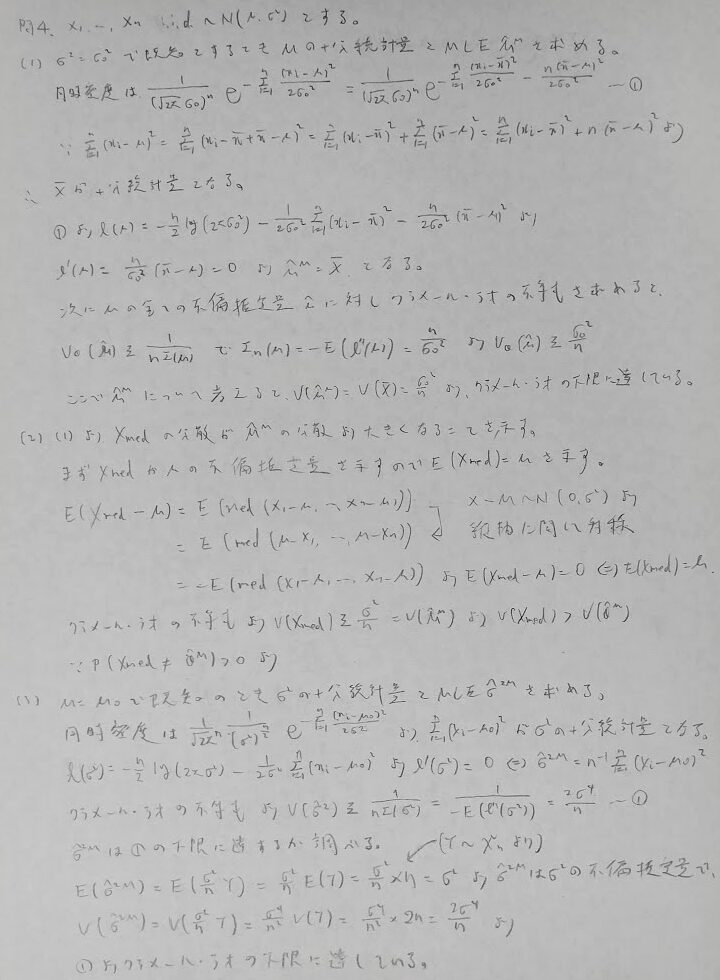 問4. X₁, …, Xn i.i.d ~ N(μ, σ²) とする。
(1) σ² = σ₀² で既知とするとき μ の十分統計量と MLE μ̂ᴹ を求める。
同時密度は 1/(√2π σ₀)ⁿ e^{-Σ_{i=1}^n (xi-μ)²/2σ₀²} = 1/(√2π σ₀)ⁿ e^{-Σ_{i=1}^n (xi-x̄)²/2σ₀² - n(x̄-μ)²/2σ₀²} …①
∵ Σ_{i=1}^n (xi-μ)² = Σ_{i=1}^n (xi-x̄+x̄-μ)² = Σ_{i=1}^n (xi-x̄)² + Σ_{i=1}^n (x̄-μ)² = Σ_{i=1}^n (xi-x̄)² + n(x̄-μ)² より
∴ X̄ が十分統計量となる。
①より l(μ) = -n/2 log(2πσ₀²) - 1/2σ₀² Σ_{i=1}^n (xi-x̄)² - n/2σ₀² (x̄-μ)² より
l'(μ) = n/σ₀² (x̄-μ) = 0 より μ̂ᴹ = X̄ となる。
次に μ の全ての不偏推定量 μ̂ に対しクラメール・ラオの不等式を求めると、
Vθ(μ̂) ≧ 1/nI(μ) で In(μ) = -E(l''(μ)) = n/σ₀² より Vθ(μ̂) ≧ σ₀²/n
ここで μ̂ᴹ について考えると、V(μ̂ᴹ) = V(X̄) = σ₀²/n より、クラメール・ラオの下限に達している。
(2) (1)より Xmed の分散が μ̂ᴹ の分散より大きくなることを示す。
まず Xmed が μ の不偏推定量を示すので E(Xmed) = μ を示す。
E(Xmed - μ) = E(med(X₁-μ, …, Xn-μ)) X-μ ~ N(0, σ²) より
= E(med(μ-X₁, …, μ-Xn)) 縦軸に関して対称
= -E(med(X₁-μ, …, Xn-μ)) より E(Xmed-μ) = 0 ⇔ E(Xmed) = μ.
クラメール・ラオの不等式より V(Xmed) ≧ σ²/n = V(μ̂ᴹ) より V(Xmed) > V(θ̂ᴹ)
∵ P(Xmed ≠ θ̂ᴹ) > 0 より
(3) μ = μ₀ で既知のとき σ² の十分統計量と MLE σ̂²ᴹ を求める。
同時密度は 1/√2πⁿ 1/(σ²)^{n/2} e^{-Σ_{i=1}^n (xi-μ₀)²/2σ²} より、Σ_{i=1}^n (Xi-μ₀)² が σ² の十分統計量となる。
l(σ²) = -n/2 log(2πσ²) - 1/2σ² Σ_{i=1}^n (xi-μ₀)² より l'(σ²) = 0 ⇔ σ̂²ᴹ = n⁻¹ Σ_{i=1}^n (Xi-μ₀)²
クラメール・ラオの不等式より V(σ̂²) ≧ 1/nI(σ²) = 1/-E(l''(σ²)) = 2σ⁴/n …①
σ̂²ᴹ は①の下限に達するか調べる。 (Y ~ χ²n より)
E(σ̂²ᴹ) = E(σ²/n Y) = σ²/n E(Y) = σ²/n × n = σ² より σ̂²ᴹ は σ² の不偏推定量で、
V(σ̂²ᴹ) = V(σ²/n Y) = σ⁴/n² V(Y) = σ⁴/n² × 2n = 2σ⁴/n より
①よりクラメール・ラオの下限に達している。